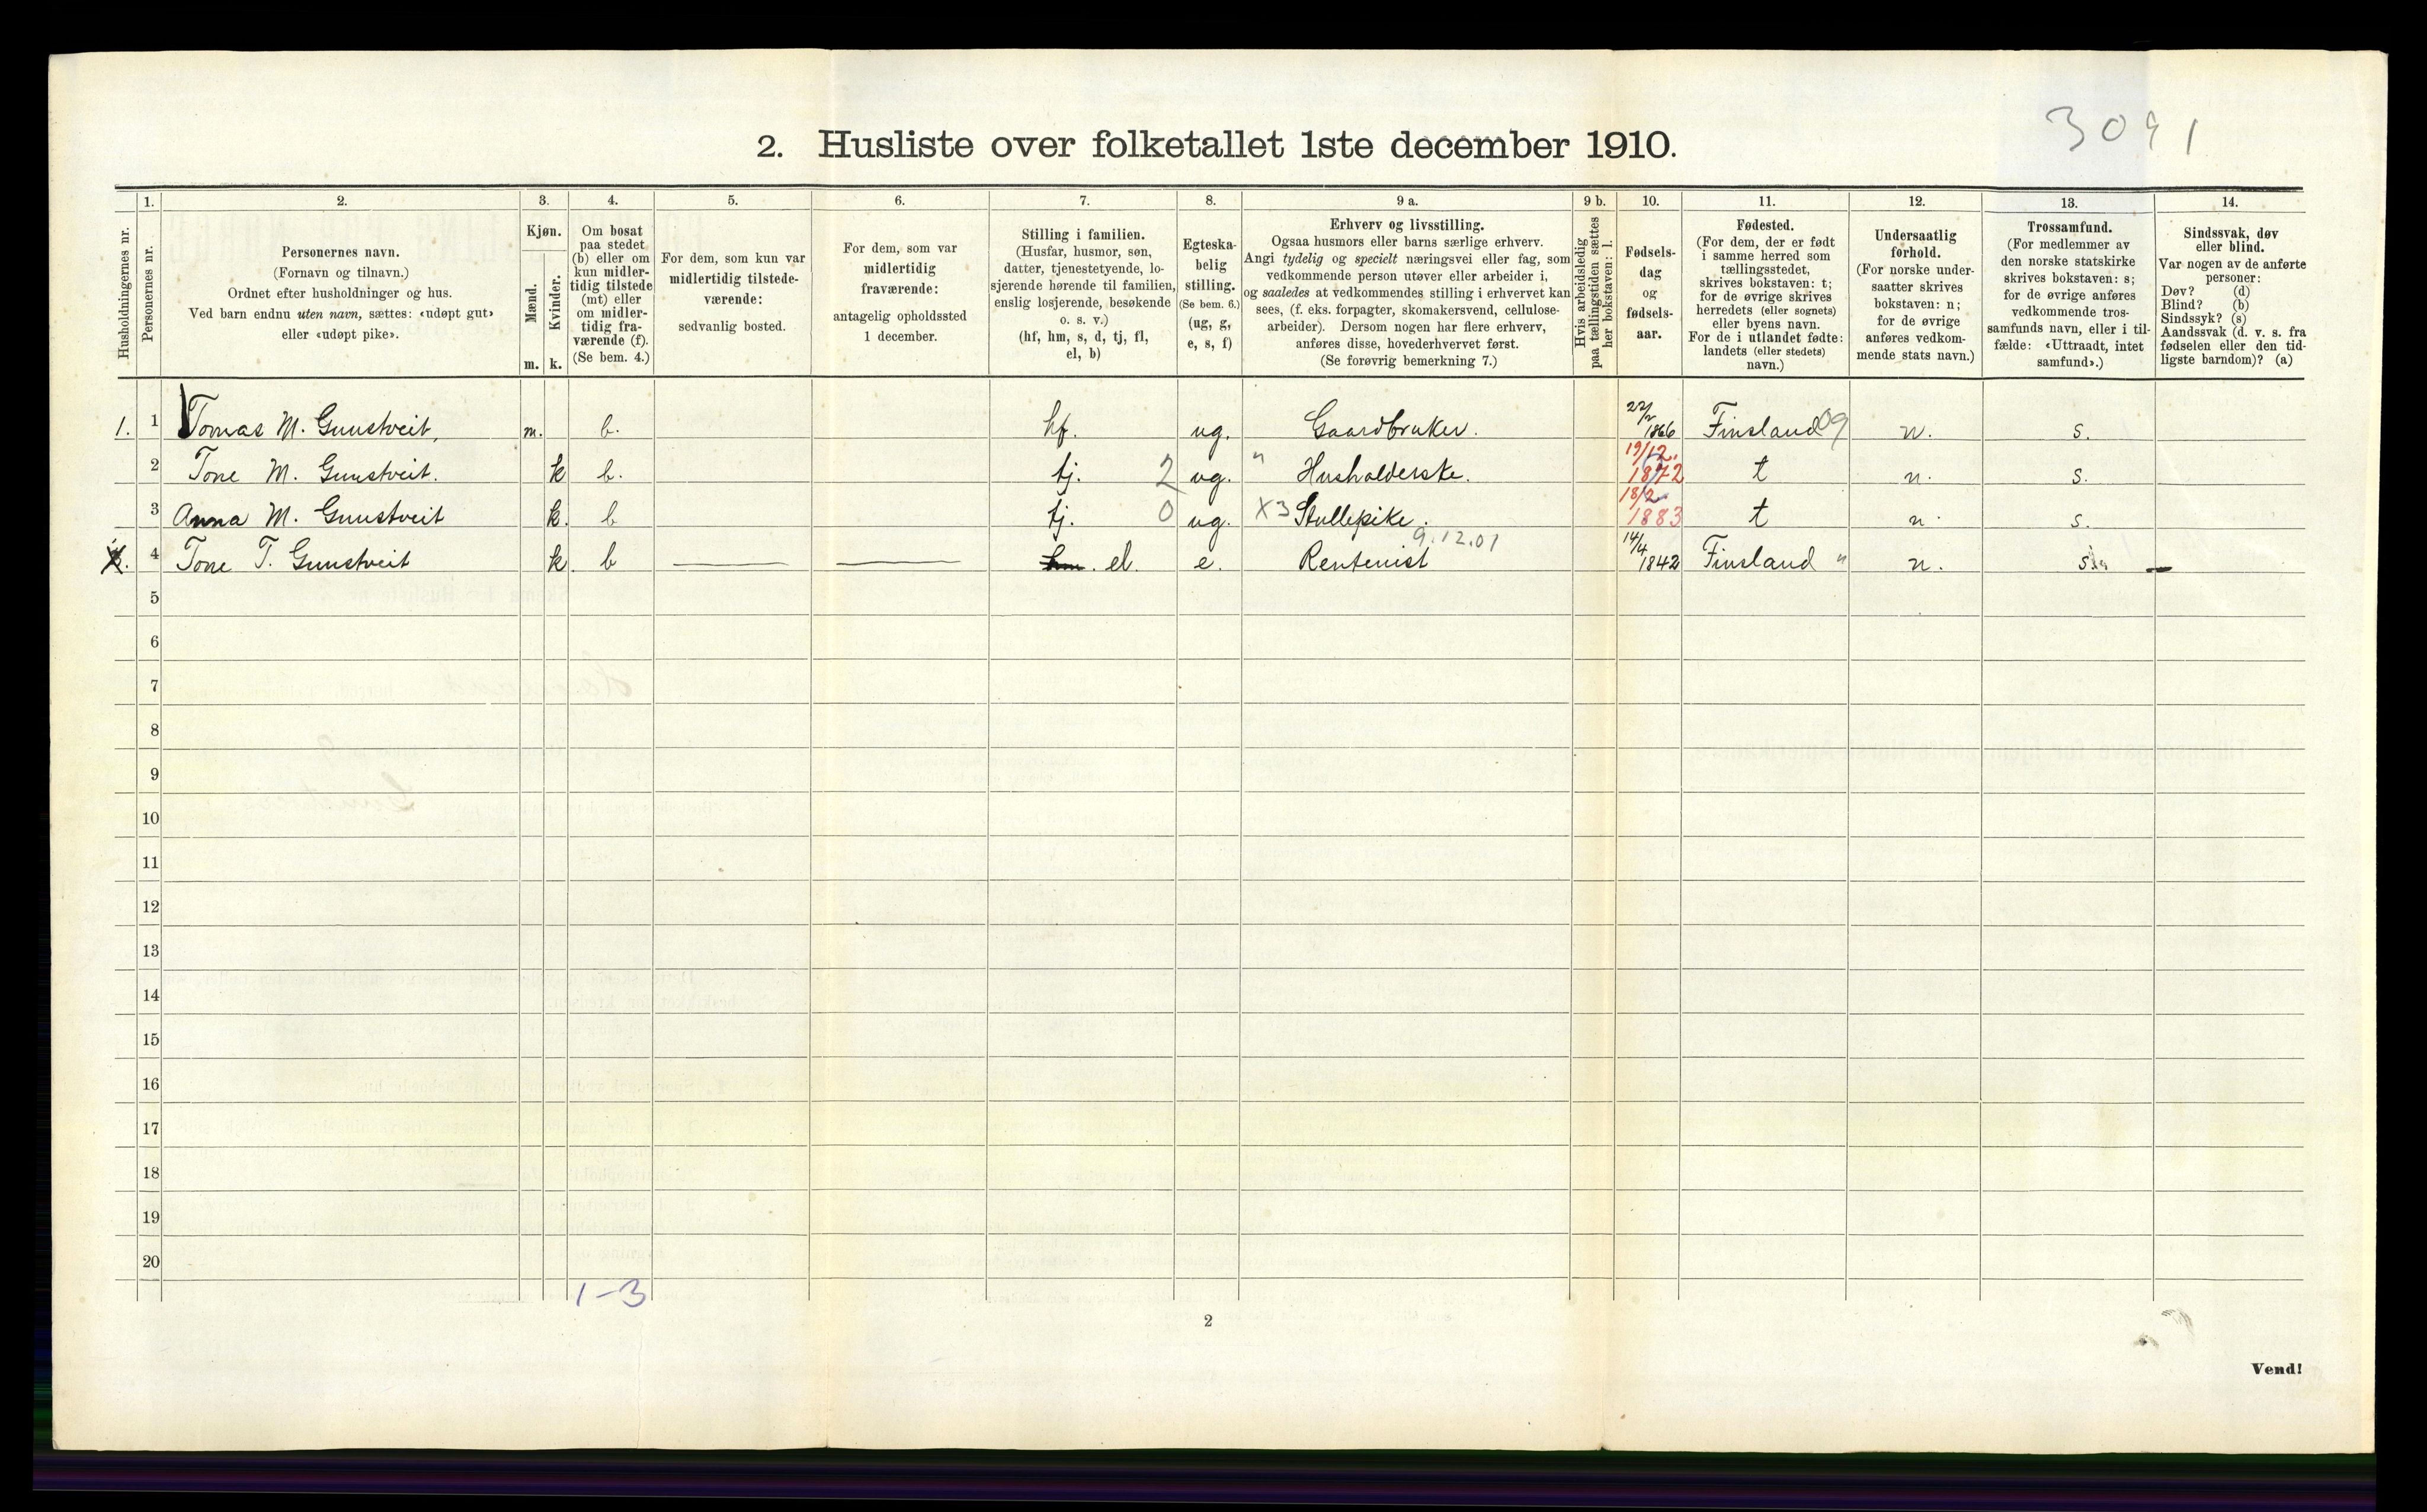 3091
2. Husliste over folketallet 1ste december 1910.
1. 2. 3. 4. 5. 6. 7. 8. 9 a. 9 b. 10. 11. 12. 13. 14.
Husholdningernes nr.
Personernes nr.
Personernes navn.
(Fornavn og tilnavn.)
Ordnet efter husholdninger og hus.
Ved barn endnu uten navn, sættes: «udøpt gut»
eller «udøpt pike».
Kjøn.
Mænd.
Kvinder.
m. k.
Om bosat
paa stedet
(b) eller om
kun midler-
tidig tilstede
(mt) eller
om midler-
tidig fra-
værende (f).
(Se bem. 4.)
For dem, som kun var
midlertidig tilstede-
værende:
sedvanlig bosted.
For dem, som var
midlertidig
fraværende:
antagelig opholdssted
1 december.
Stilling i familien.
(Husfar, husmor, søn,
datter, tjenestetyende, lo-
sjerende hørende til familien,
enslig losjerende, besøkende
o. s. v.)
(hf, hm, s, d, tj, fl,
el, b)
Egteska-
belig
stilling.
(Se bem. 6.)
(ug, g,
e, s, f)
Erhverv og livsstilling.
Ogsaa husmors eller barns særlige erhverv.
Angi tydelig og specielt næringsvei eller fag, som
vedkommende person utøver eller arbeider i,
og saaledes at vedkommendes stilling i erhvervet kan
sees, (f. eks. forpagter, skomakersvend, cellulose-
arbeider). Dersom nogen har flere erhverv,
anføres disse, hovederhvervet først.
(Se forøvrig bemerkning 7.)
Hvis arbeidsledig
paa tællingstiden sættes
her bokstaven: l.
Fødsels-
dag
og
fødsels-
aar.
Fødested.
(For dem, der er født
i samme herred som
tællingsstedet,
skrives bokstaven: t;
for de øvrige skrives
herredets (eller sognets)
eller byens navn.
For de i utlandet fødte:
landets (eller stedets)
navn.)
Undersaatlig
forhold.
(For norske under-
saatter skrives
bokstaven: n;
for de øvrige
anføres vedkom-
mende stats navn.)
Trossamfund.
(For medlemmer av
den norske statskirke
skrives bokstaven: s;
for de øvrige anføres
vedkommende tros-
samfunds navn, eller i til-
fælde: «Uttraadt, intet
samfund».)
Sindssvak, døv
eller blind.
Var nogen av de anførte
personer:
Døv? (d)
Blind? (b)
Sindssyk? (s)
Aandssvak (d. v. s. fra
fødselen eller den tid-
ligste barndom)? (a)
1. 1 Tomas M. Gunstveit, m. b. hf. ug. Gaardbruker. 22/2 1866 Finsland 09 n. s.
2 Tone M. Gunstveit. k b. tj. 2 ug. " Husholderske. 19/12. 1872 t n. s.
3 Anna M. Gunstveit k. b tj. 0 ug. X3 Stellepike. 18/2 1883 t n. s.
9.12.01
4 Tone T. Gunstveit k. b el. e. Rentenist 14/4 1842 Finsland " n. s.
5
6
7
8
9
10
11
12
13
14
15
16
17
18
19
20
1-3
2
Vend!